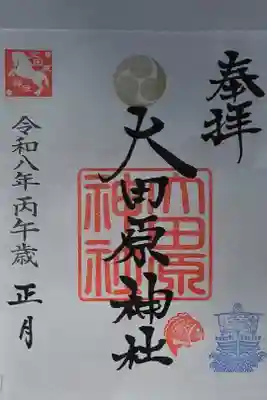 奉拝
大田原神社
大田原
神社
令和八年丙午歳 正月